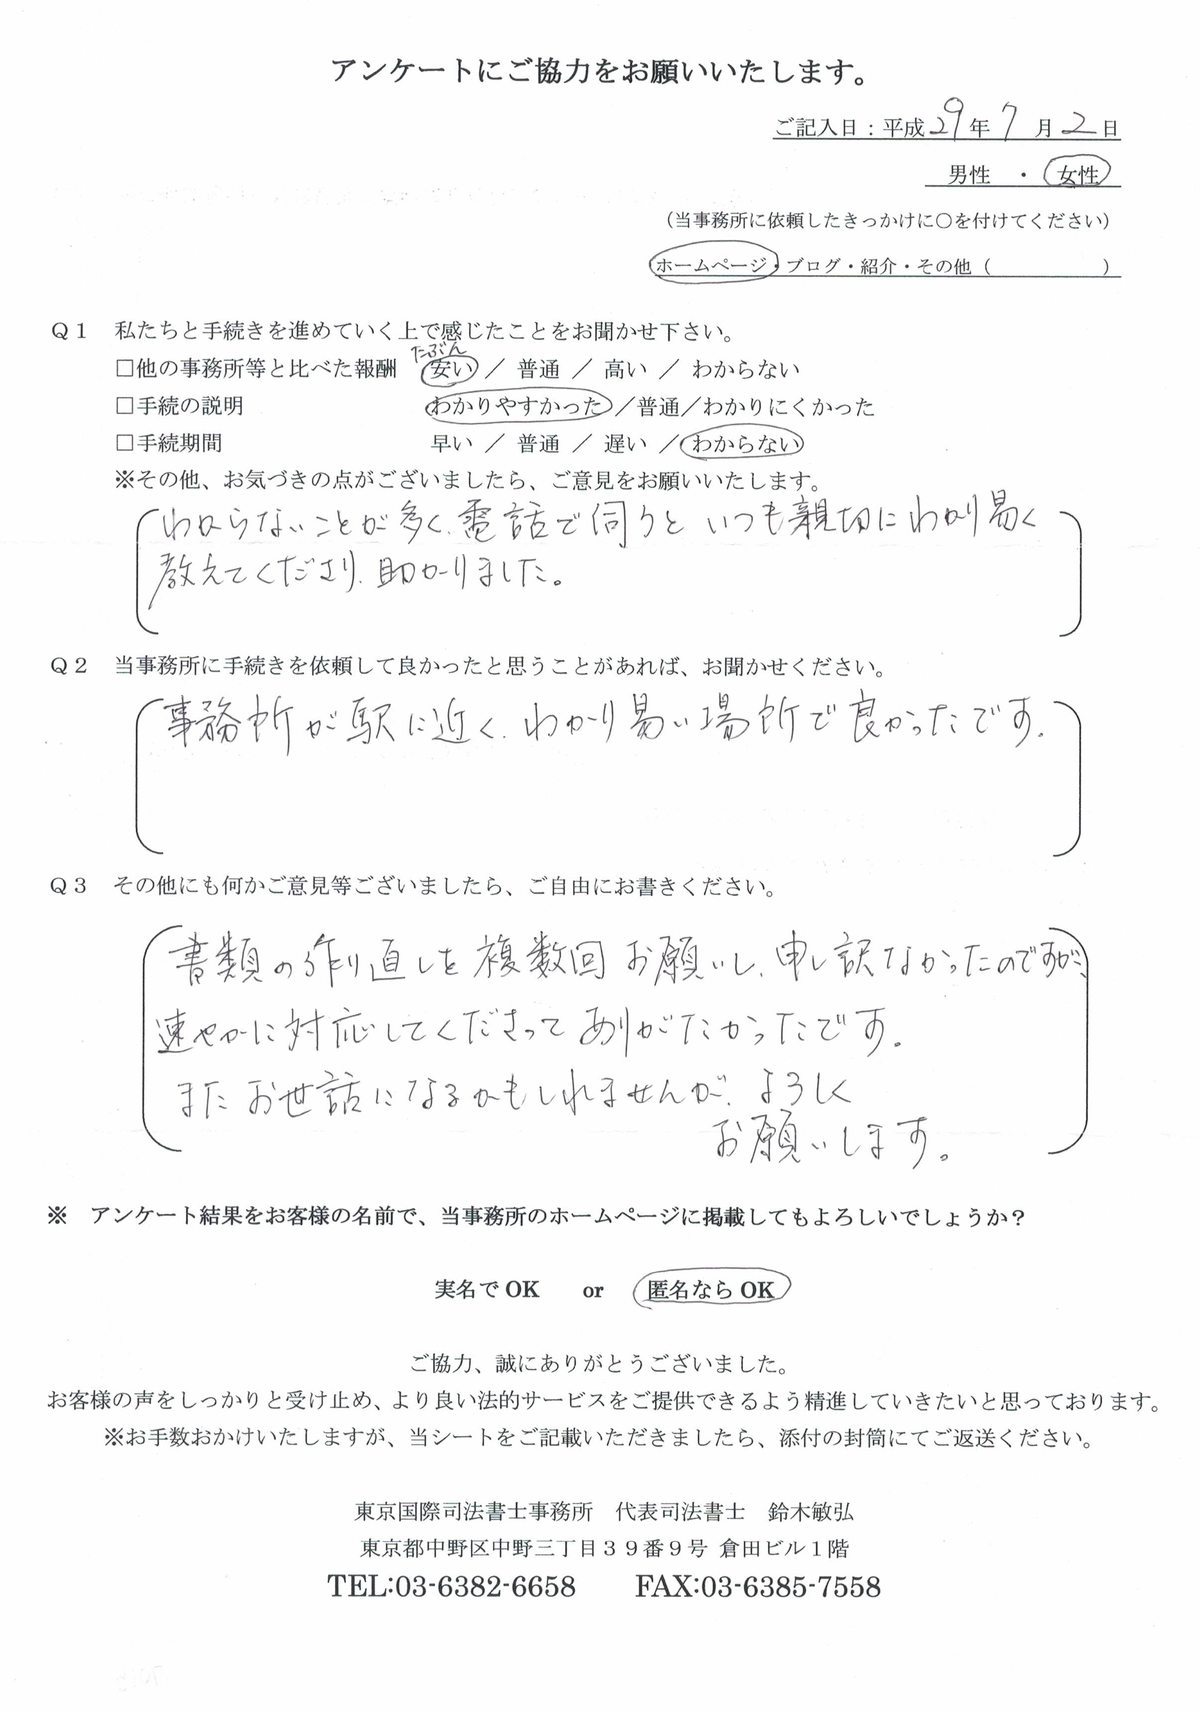 アンケートにご協力をお願いいたします。
ご記入日：平成29年7月2日
男性　・　女性
（当事務所に依頼したきっかけに○を付けてください）
ホームページ・ブログ・紹介・その他（　　　　　　）
Ｑ１　私たちと手続きを進めていく上で感じたことをお聞かせ下さい。
たぶん
□他の事務所等と比べた報酬　安い ／ 普通 ／ 高い ／ わからない
□手続の説明　わかりやすかった ／普通／わかりにくかった
□手続期間　早い ／ 普通 ／ 遅い ／ わからない
※その他、お気づきの点がございましたら、ご意見をお願いいたします。
わからないことが多く、電話で伺うと いつも親切にわかり易く
教えてくださり、助かりました。
Ｑ２　当事務所に手続きを依頼して良かったと思うことがあれば、お聞かせください。
事務所が駅に近く、わかり易い場所で良かったです。
Ｑ３　その他にも何かご意見等ございましたら、ご自由にお書きください。
書類の作り直しを複数回お願いし、申し訳なかったのですが、
速やかに対応してくださって ありがたかったです。
また お世話になるかもしれませんが、よろしく
お願いします。
※　アンケート結果をお客様の名前で、当事務所のホームページに掲載してもよろしいでしょうか？
実名で OK　　or　　匿名なら OK
ご協力、誠にありがとうございました。
お客様の声をしっかりと受け止め、より良い法的サービスをご提供できるよう精進していきたいと思っております。
※お手数おかけいたしますが、当シートをご記載いただきましたら、添付の封筒にてご返送ください。
東京国際司法書士事務所　代表司法書士　鈴木敏弘
東京都中野区中野三丁目３９番９号 倉田ビル１階
TEL:03-6382-6658　　FAX:03-6385-7558